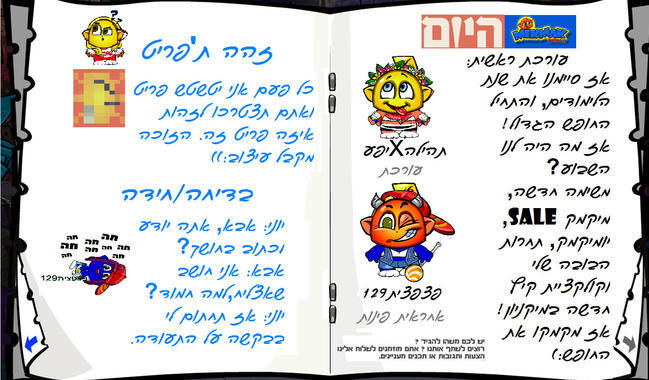 היום
MIKMAK
עורכת ראשית:
אז סיימנו את שנת
הלימודים, והתחיל
החופש הגדול!
אז מה היה לנו
השבוע?
משימה חדשה,
מיקמק SALE,
יומיקמק, תחרות
הבובה שלי
וקולקציית קיץ
חדשה במיקניון!
אז מקמקו את
החופש:)
תהילהXיפע
עורכת
פצפצית129
אחראית פינות
יש לכם משהו להגיד ?
רוצים לשתף אותנו ? אתם מוזמנים לשלוח אלינו
הצעות ותגובות או תכנים מעניינים.
זהה ת'פריט
כל פעם אני יטשטש פריט
ואתם תצטרכו לזהות
איזה פריט זה. הזוכה
מקבל עיצוב:))
בדיחה/חידה
יוני: אבא, אתה יודע
לכתוב בחושך?
אבא: אני חושב
שאצליח,למה חמוד?
יוני: אז תחתום לי
בבקשה על התעודה.
חה
חה חה
חה חה חה
חה חה
חה
פצפצית129